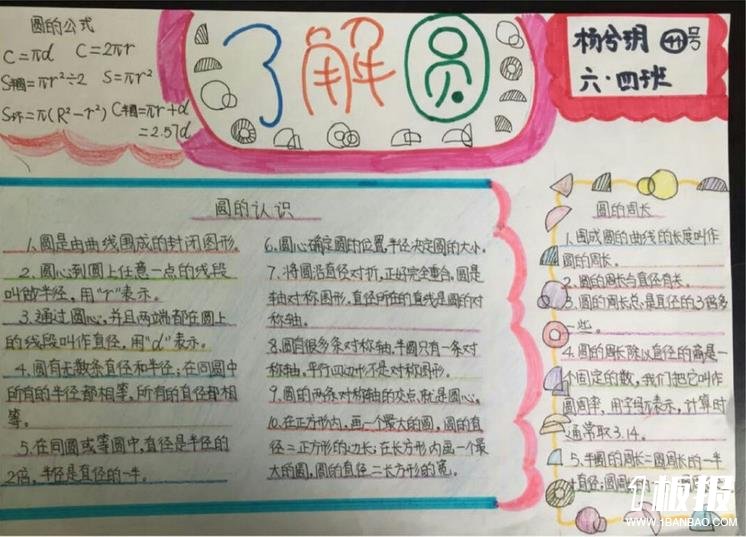 圆的公式
C=πd C=2πr
S半圆=πr²÷2 S=πr²
S环=π(R²-r²) C半圆=πr+d
=2.57d
了解圆
杨兮玥 44号
六·四班
圆的认识
1.圆是由曲线围成的封闭图形。
2.圆心到圆上任意一点的线段
叫做半径,用“r”表示。
3.通过圆心,并且两端都在圆上
的线段叫作直径,用“d”表示。
4.圆有无数条直径和半径;在同圆中
所有的半径都相等,所有的直径都相
等。
5.在同圆或等圆中,直径是半径的
2倍,半径是直径的一半。
6.圆心确定圆的位置,半径决定圆的大小。
7.将圆沿直径对折,正好完全重合。圆是
轴对称图形,直径所在的直线是圆的对
称轴。
8.圆有很多条对称轴,半圆只有一条对
称轴,平行四边形不是对称图形。
9.圆的两条对称轴的交点,就是圆心。
10.在正方形内,画一个最大的圆,圆的直
径=正方形的边长;在长方形内画一个最
大的圆,圆的直径=长方形的宽。
圆的周长
1.围成圆的曲线的长度叫作
圆的周长。
2.圆的周长与直径有关。
3.圆的周长总是直径的3倍多
一些。
4.圆的周长除以直径的商是一
个固定的数,我们把它叫作
圆周率,用字母π表示,计算时
通常取3.14。
5.半圆的周长=圆周长的一半
+直径;圆周
板报
WWW.1BANBAO.COM